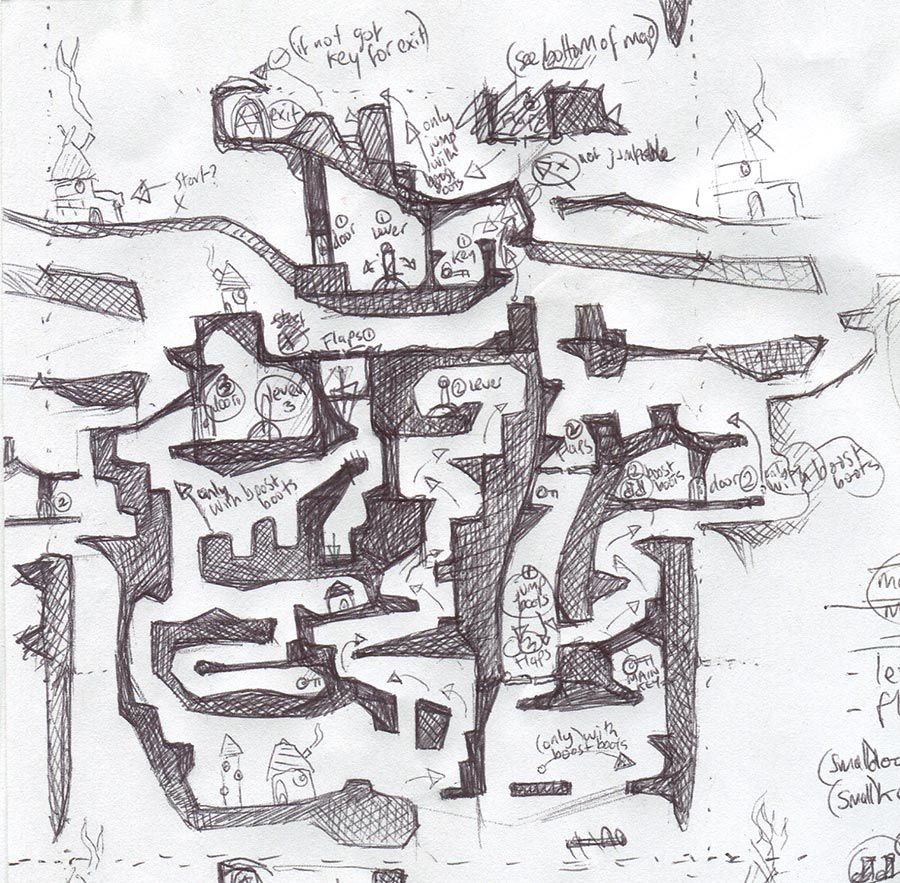 (if not got
key for exit)
(see bottom of map)
exit
only
jump
with
boost
boots
not jumpable
Start?
x
① door
① lever
① key
start
Flaps①
② lever
③ door
lever
3
② Flaps
② boost
boots
door②
only
with boost
boots
②
only
with boost
boots
①
jump
boots
③
Flaps
MAIN
KEY
(only) with
boost boots
- le
- fl
(small
(small k